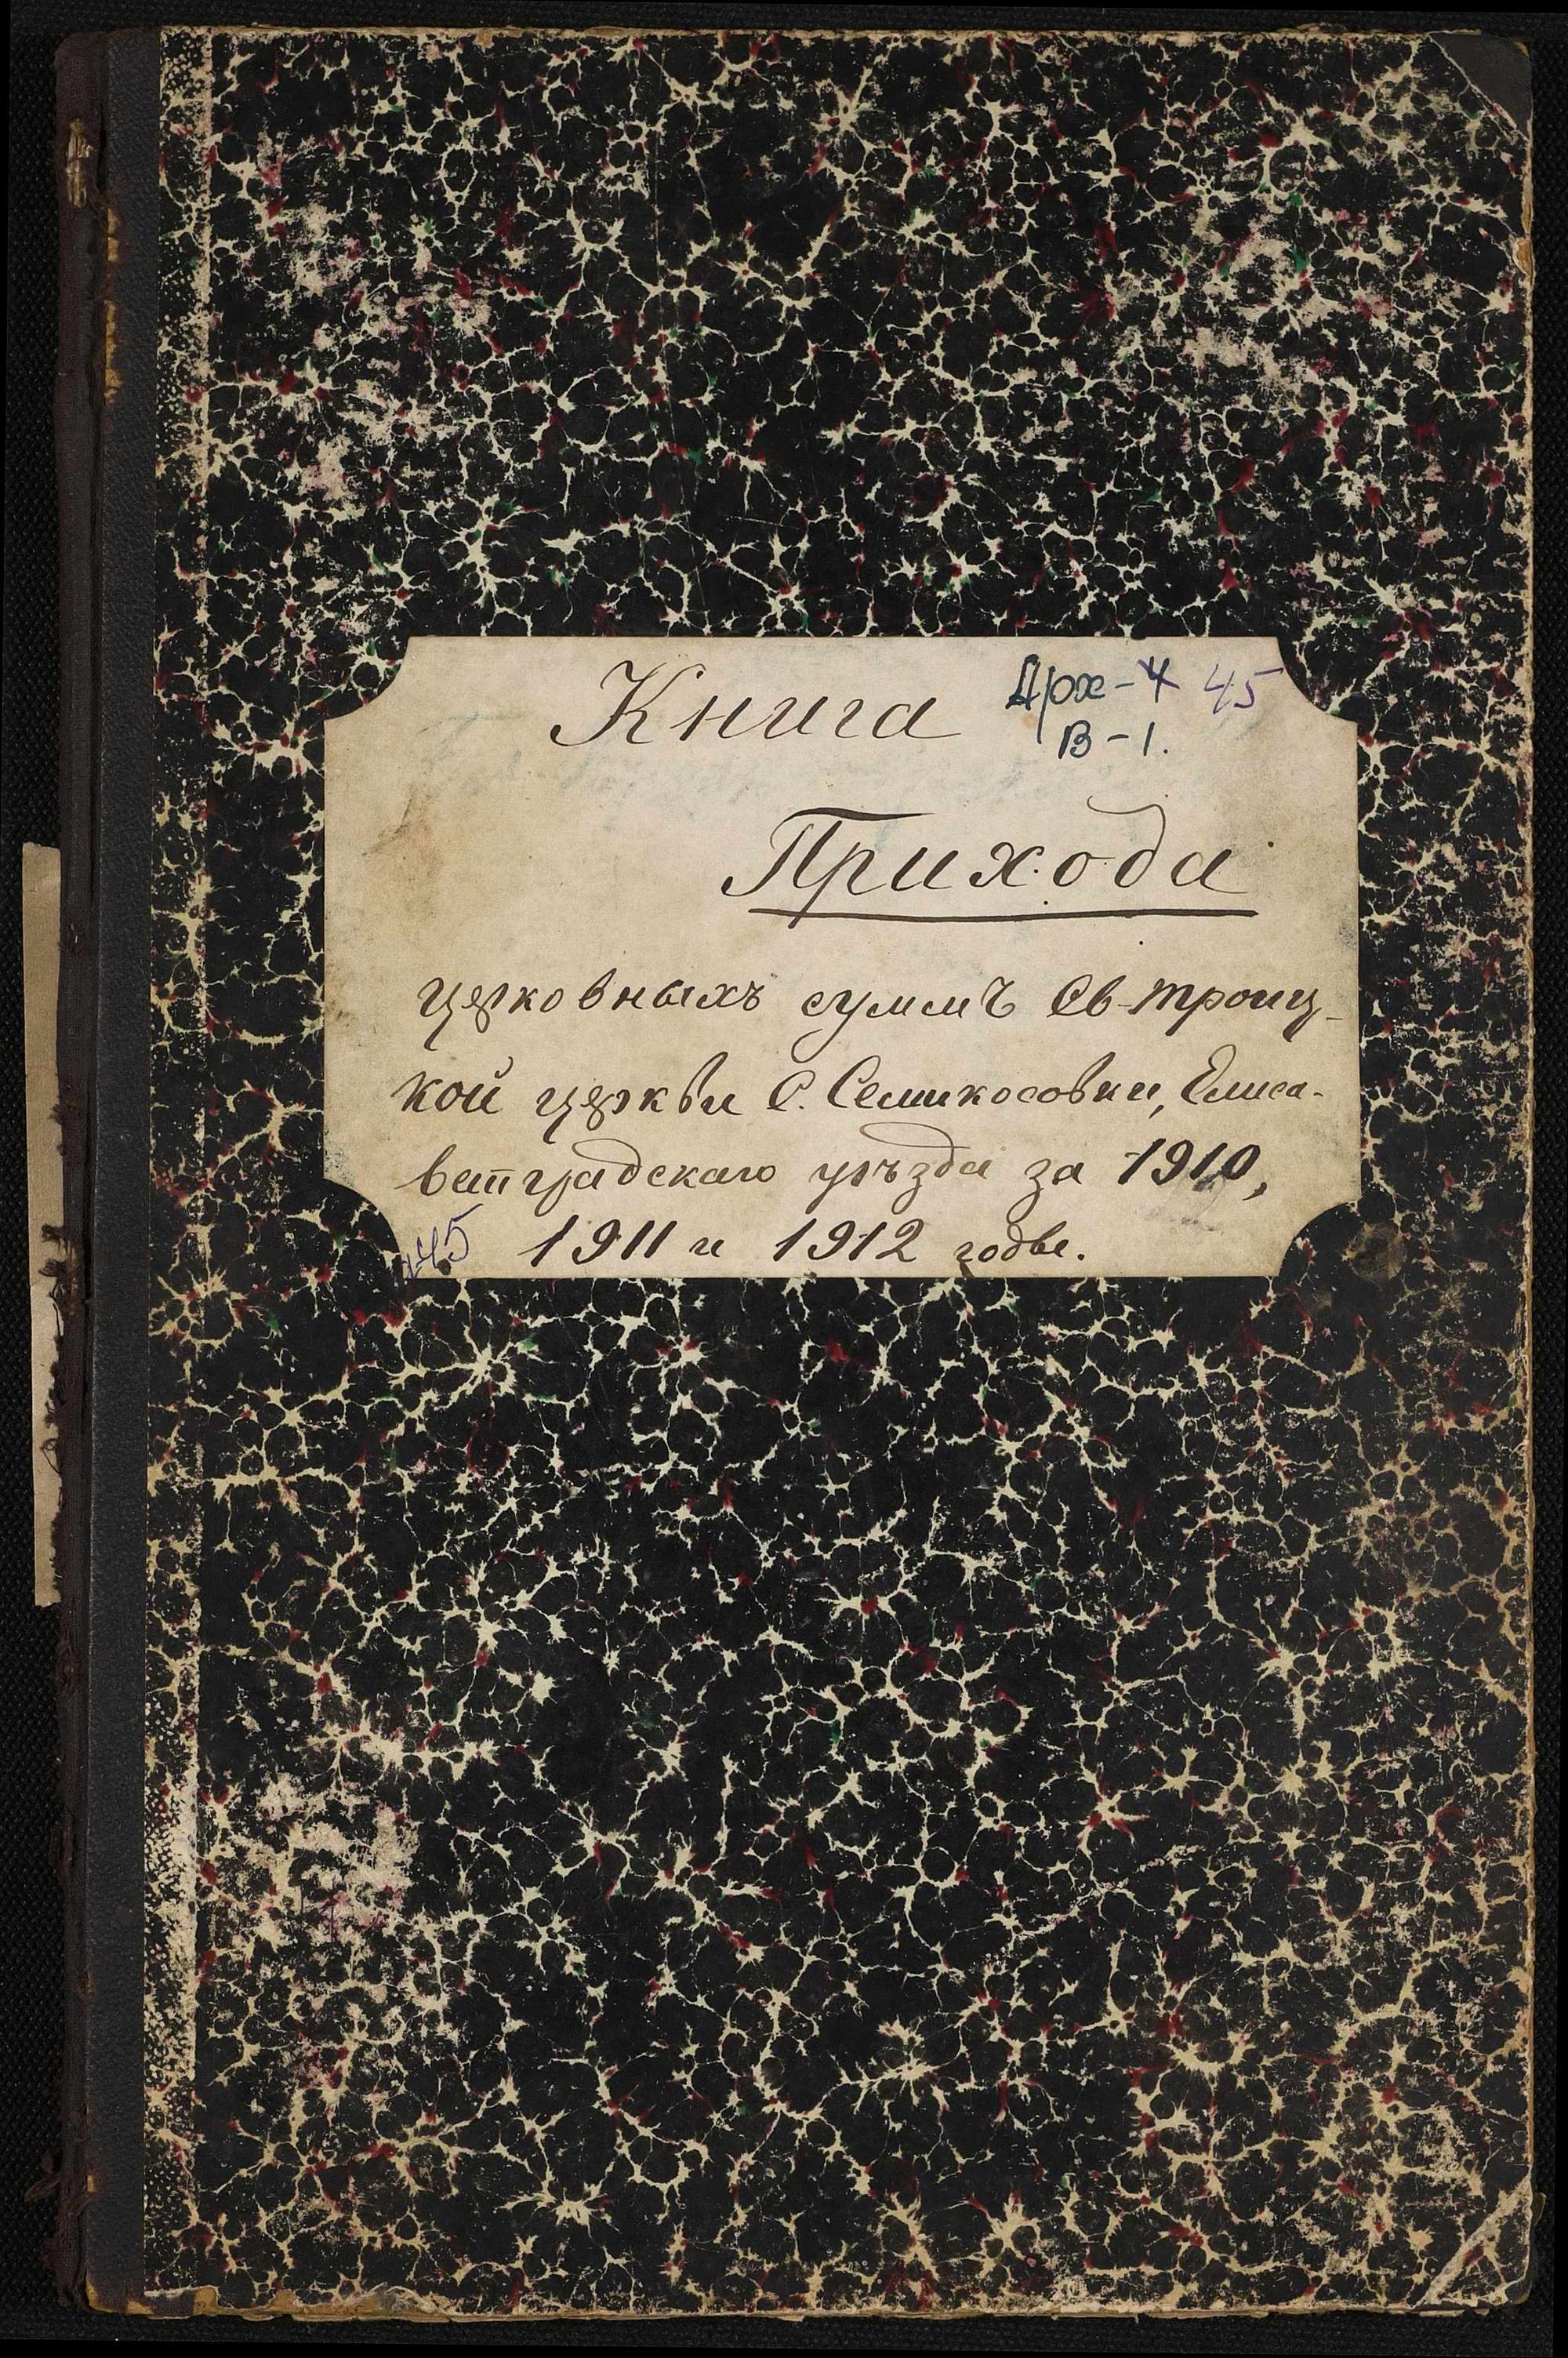 Книга
Арх-4 45
В-1.
Прихода
церковныхъ суммъ Св-троиц-
кой церкви С. Семикосовки, Елиса-
ветградскаго уѣзда за 1910,
1911 и 1912 годы.
45